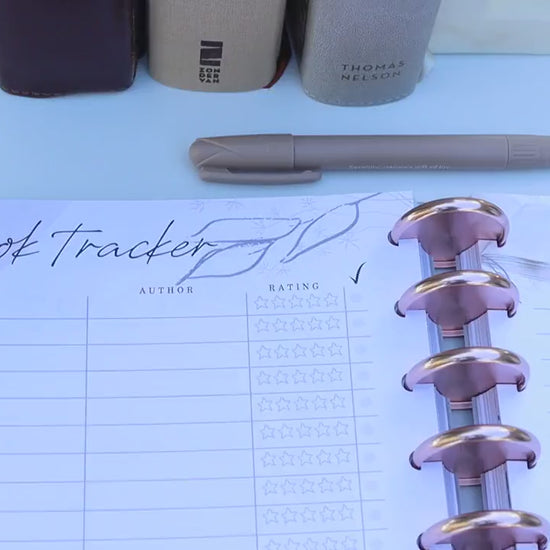 ZON
DER
VAN
THOMAS
NELSON
ok Tracker
AUTHOR
RATING